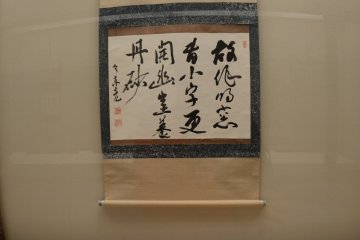 故作明窓
書小字更
開幽室養
丹砂